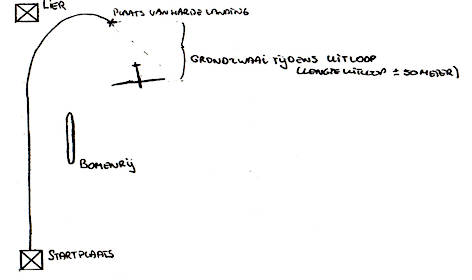 LIER
PLAATS VAN HARDE LANDING
GRONDZWAAI TIJDENS UITLOOP
(LENGTE UITLOOP ± 50 METER)
BOMENRIJ
STARTPLAATS